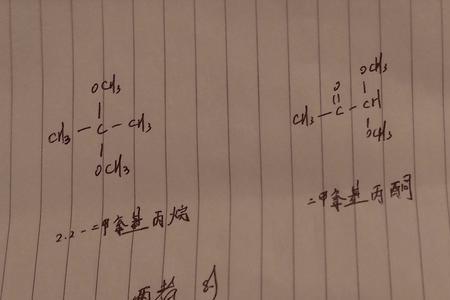 OCH3
CH3 - C - CH3
OCH3
2.2-二甲氧基丙烷
O OCH3
CH3 - C - CH
OCH3
二甲氧基丙酮
两者